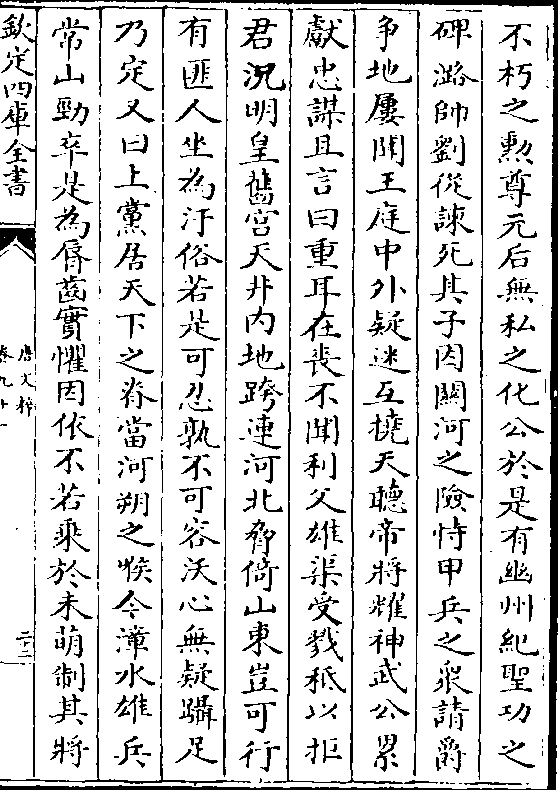 不朽之勲尊元后無私之化公於是有幽州紀聖功之
碑潞帥劉從諫死其子因關河之險恃甲兵之衆請爵
争地屢聞王庭中外疑迷互撓天聽帝將耀神武公累
獻忠謀且言曰重耳在喪不聞利父雄渠受戮秪以拒
君況明皇舊宫天井内地跨連河北脅倚山東豈可行
有匪人坐為汙俗若是可忍孰不可容沃心無疑躡足
乃定又曰上黨居天下之脊當河朔之喉今漳水雄兵
常山勁卒是為脣齒實懼因依不若乘於未萌制其將
欽定四庫全書
唐文粹
卷九十一
二十三